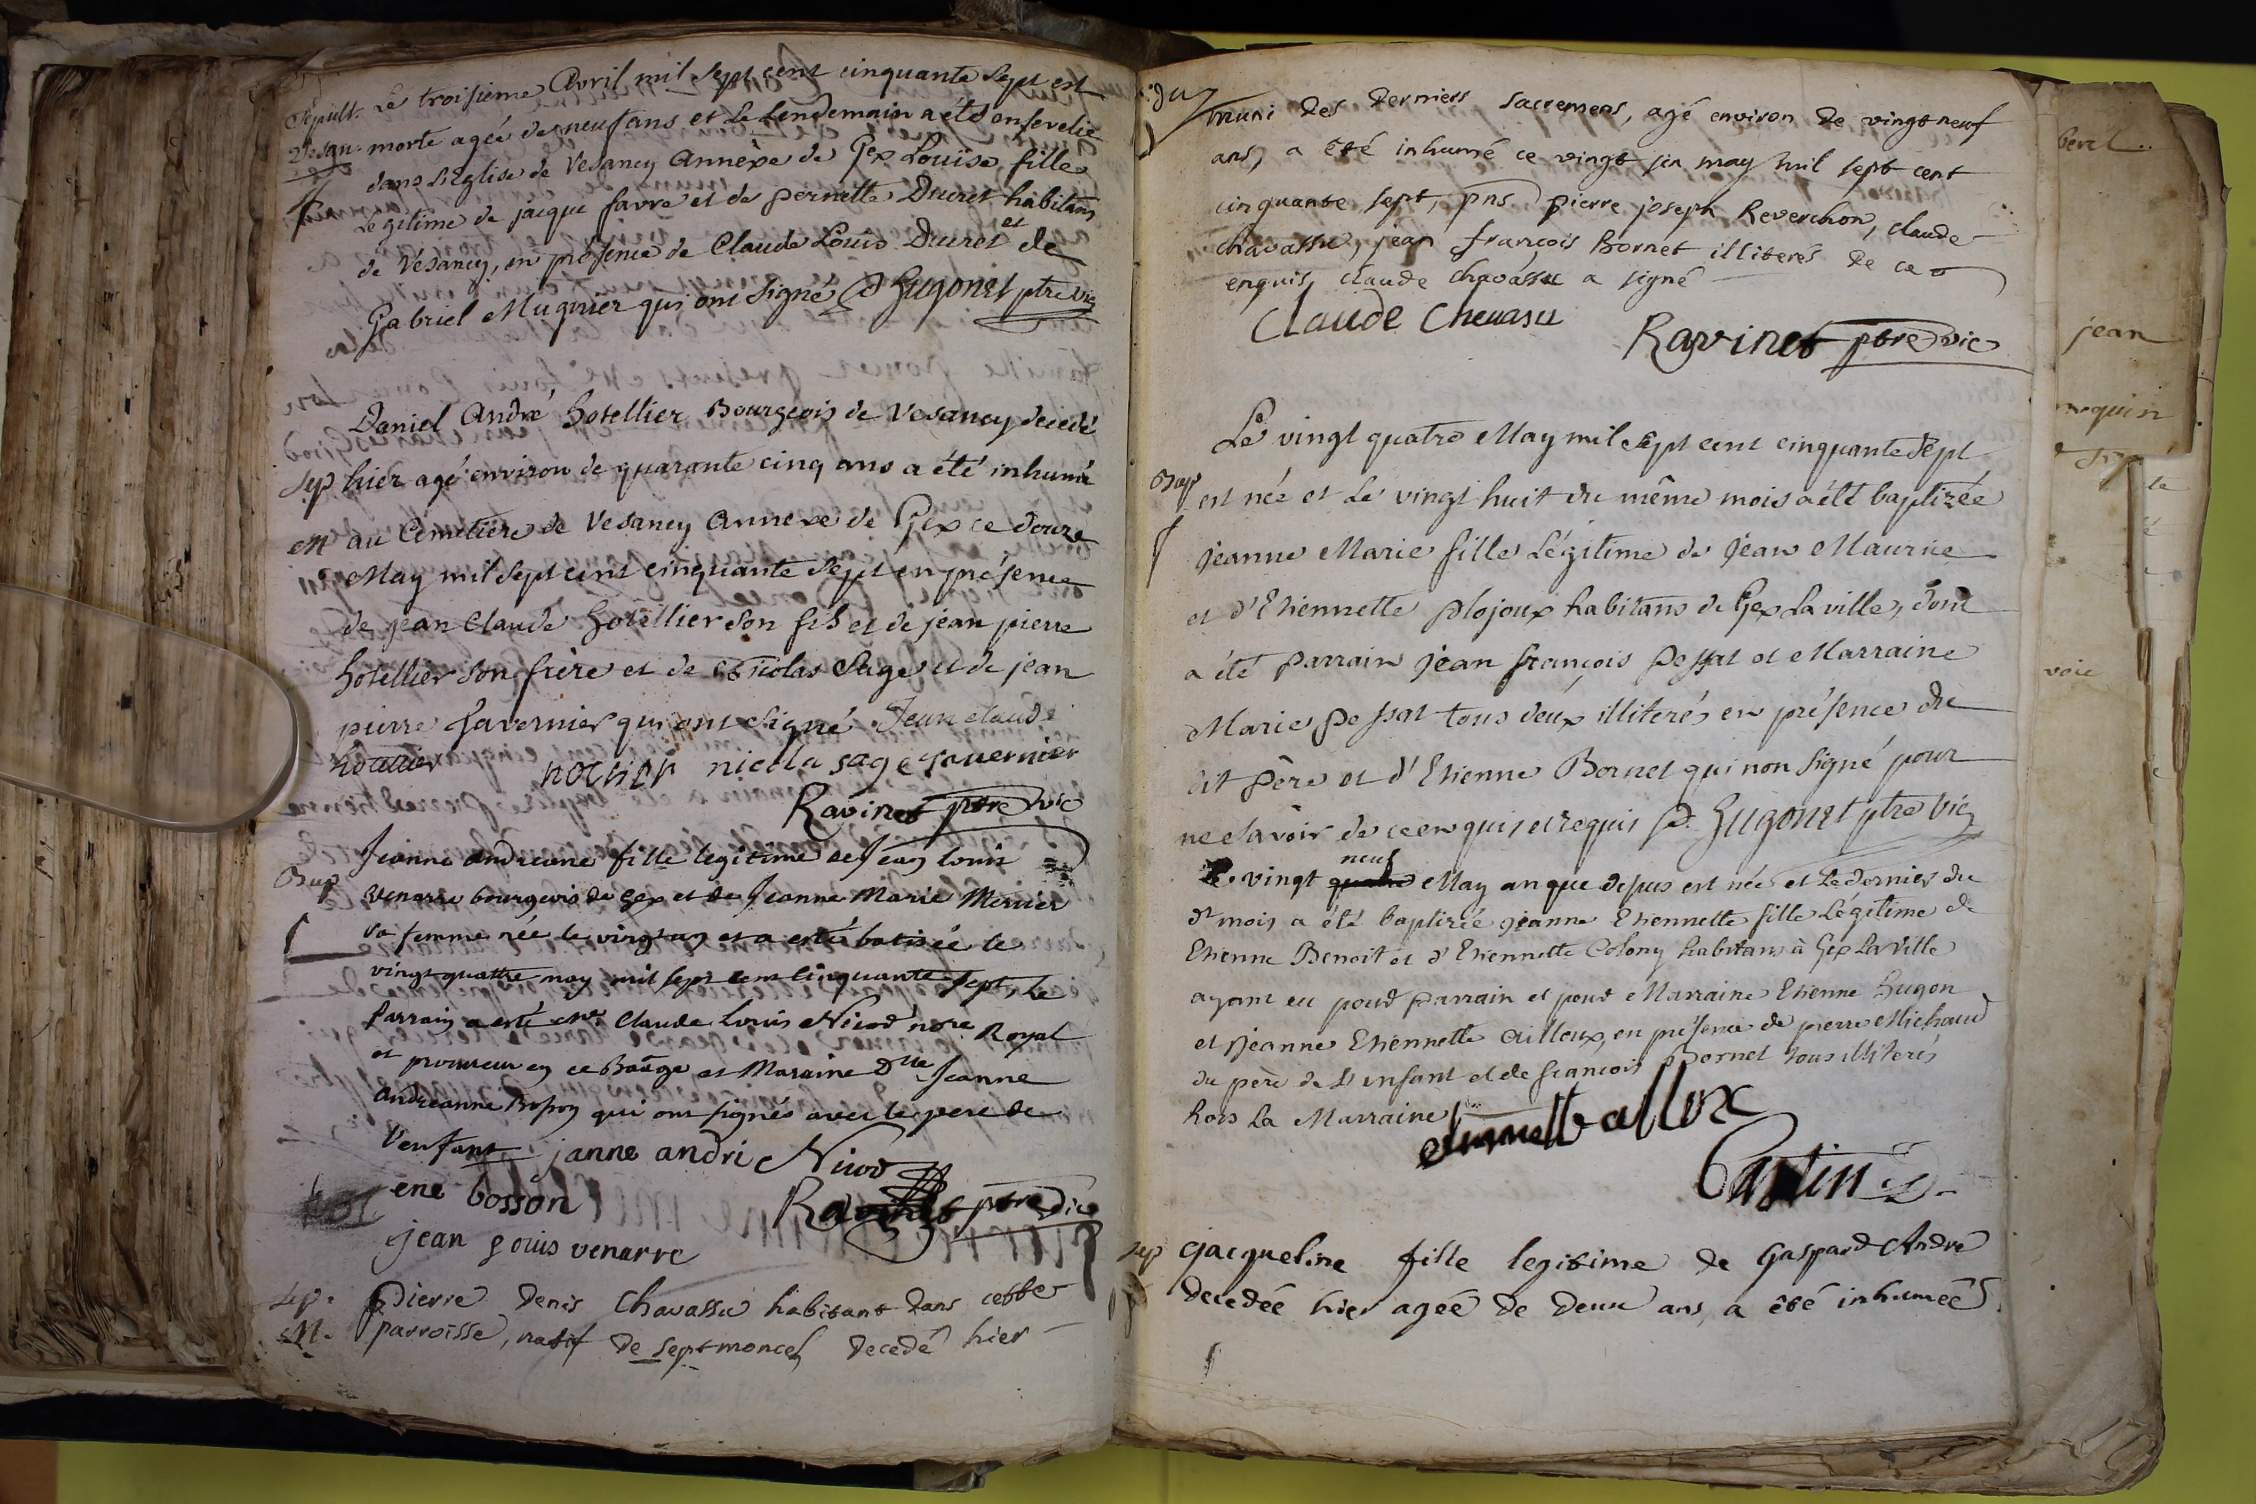 Sépult. Le troisième Avril mil sept cent cinquante sept est
morte agée de neuf ans et Le Lendemain a été ensevelie
dans L'Eglise de Vesancy Annèxe de Gex Louise, fille
Légitime de jacque favre et de pernette Ducret habitans
de Vesancy, en présence de Claude Louis Ducret et de
Gabriel Mugnier qui ont signé Hugonet ptre vic
Daniel André hotellier Bourgeois de Vesancy decedé
sep hier agé environ de quarante cinq ans a été inhumé
M au Cemetière de Vesancy Annexe de Gex ce douze
May mil sept cent cinquante sept en présence
de jean Claude hotellier son fils et de jean pierre
hotellier son frère et de nicolas Sage et de jean
pierre Tavernier qui ont signé Jean claude
hotellier nicola sage tavernier
Ravinet ptre vic
Bap Jeanne andreanne fille legitime de Jean louis
venarre bourgeois de gex et de Jeanne Marie Mercier
sa femme née le vingt un et a estée batisée le
vingt quattre may mil sept cent cinquante sept, Le
Parrain a esté Mr Claude Louis Nicod nore Royal
et procureur en ce Bailage et Maraine Dlle Jeanne
andreanne Bosson qui ont signés avec le pere de
l'enfant janne andri Nicod
ene bosson Ravinet ptre vic
jean louis venarre
sep. pierre Denis Chavassu habitant dans cette
M. parroisse, natif de septmoncel decedé hier
muni des derniers sacremens, agé environ de vingt neuf
ans, a été inhumé ce vingt six may mil sept cent
cinquante sept, pns pierre joseph Reverchon, claude
chavassu, jean françois Bornet illiterés de ce
enquis, claude chavassu a signé
Claude Chevasu
Ravinet ptre vic
Le vingt quatre May mil sept cent cinquante sept
Bap est née et Le vingt huit du même mois a été baptizée
jeanne Marie fille Légitime de jean Maurice
et d'Etiennette plojoux habitans de Gex La ville, dont
a été parrain jean françois pessat et Marraine
Marie pessat tous deux illiterés en présence du
dit père et d'Etienne Bornet qui n'on signé pour
ne savoir de ce enquis et requis Hugonet ptre vic
neuf
Le vingt quatre May an que desus est née et Le dernier du
dt mois a été baptizée jeanne Etiennette fille Légitime de
Etienne Benoit et d'Etiennette Colony habitans à Gex La ville
ayant eu pour parrain et pour Marraine Etienne hugon
et jeanne Etiennette ailloux, en présence de pierre Michaud
du père de L'enfant et de françois Bornet tous illiterés
hors La Marraine
Castin
sep jacqueline fille legitime de Gaspard André
decedée hier agée de deux ans, a été inhumée